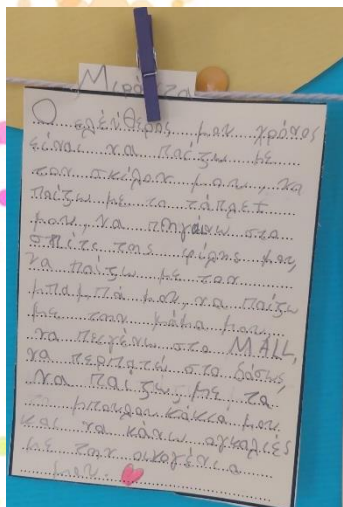 Ο ελέυθερος μου χρόνος
είναι να παίζω με
τον σκίλον μου, να
παίζω με το τάπλετ
μου, να πηγάινω στο
σπίτι της φίλης μου,
να παίζω με τον
μπαμπά μου, να παίζω
με την μάμα μου,
να πιεγένω στο MALL,
να περπατώ στο δάσως,
να παίζω με τα
μπουρου κάκιά μου
και να κάνω αγκαλιές
με την οικογένια
μου.